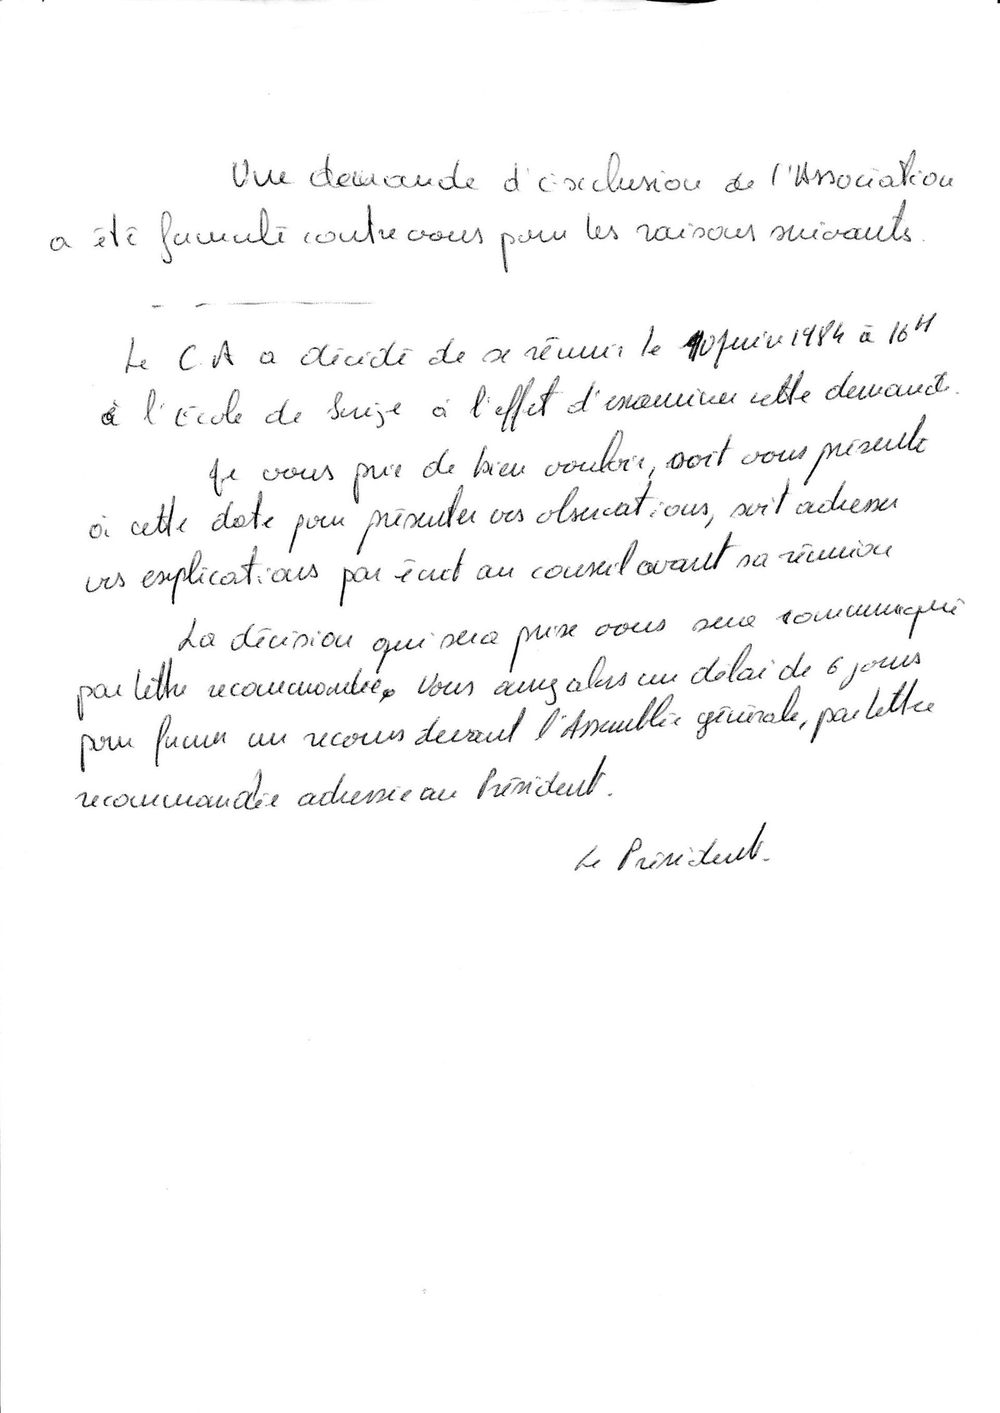 Une demande d'exclusion de l'Association
a été formulé contre vous pour les raisons suivants.
Le C.A a décidé de se réunir le 10 juin 1984 à 16H
à l'Ecole de à l'effet d'examiner cette demande.
Je vous prie de bien vouloir, soit vous présenter
à cette date pour présenter vos observations, soit adresser
vos explications par écrit au conseil avant sa réunion
La décision qui sera prise vous sera communiqué
par lettre recommandée. Vous aurez alors un délai de 6 jours
pour former un recours devant l'Assemblée générale, par lettre
recommandée adressée au Président.
Le Président.